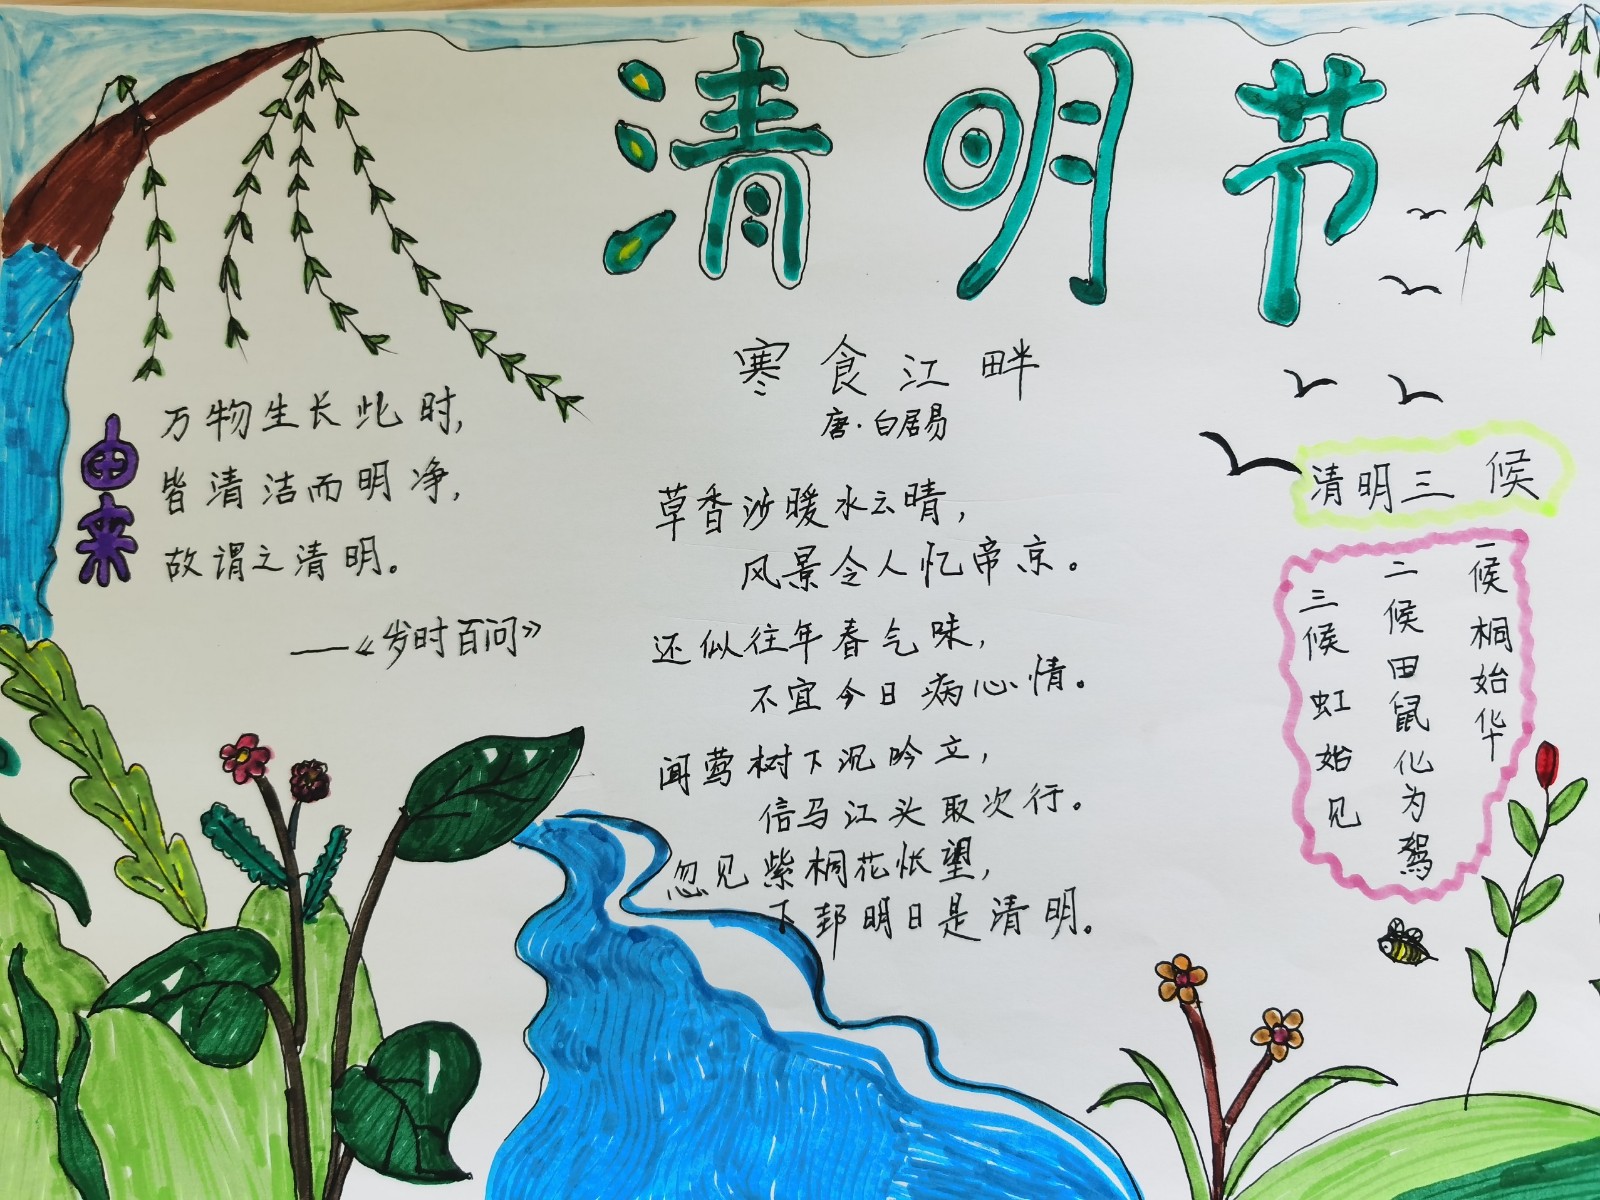 清明节
由来
万物生长此时，
皆清洁而明净，
故谓之清明。
——《岁时百问》
寒食江畔
唐·白居易
草香沙暖水云晴，
风景令人忆帝京。
还似往年春气味，
不宜今日病心情。
闻莺树下沉吟立，
信马江头取次行。
忽见紫桐花怅望，
下邽明日是清明。
清明三候
一候桐始华
二候田鼠化为鴽
三候虹始见